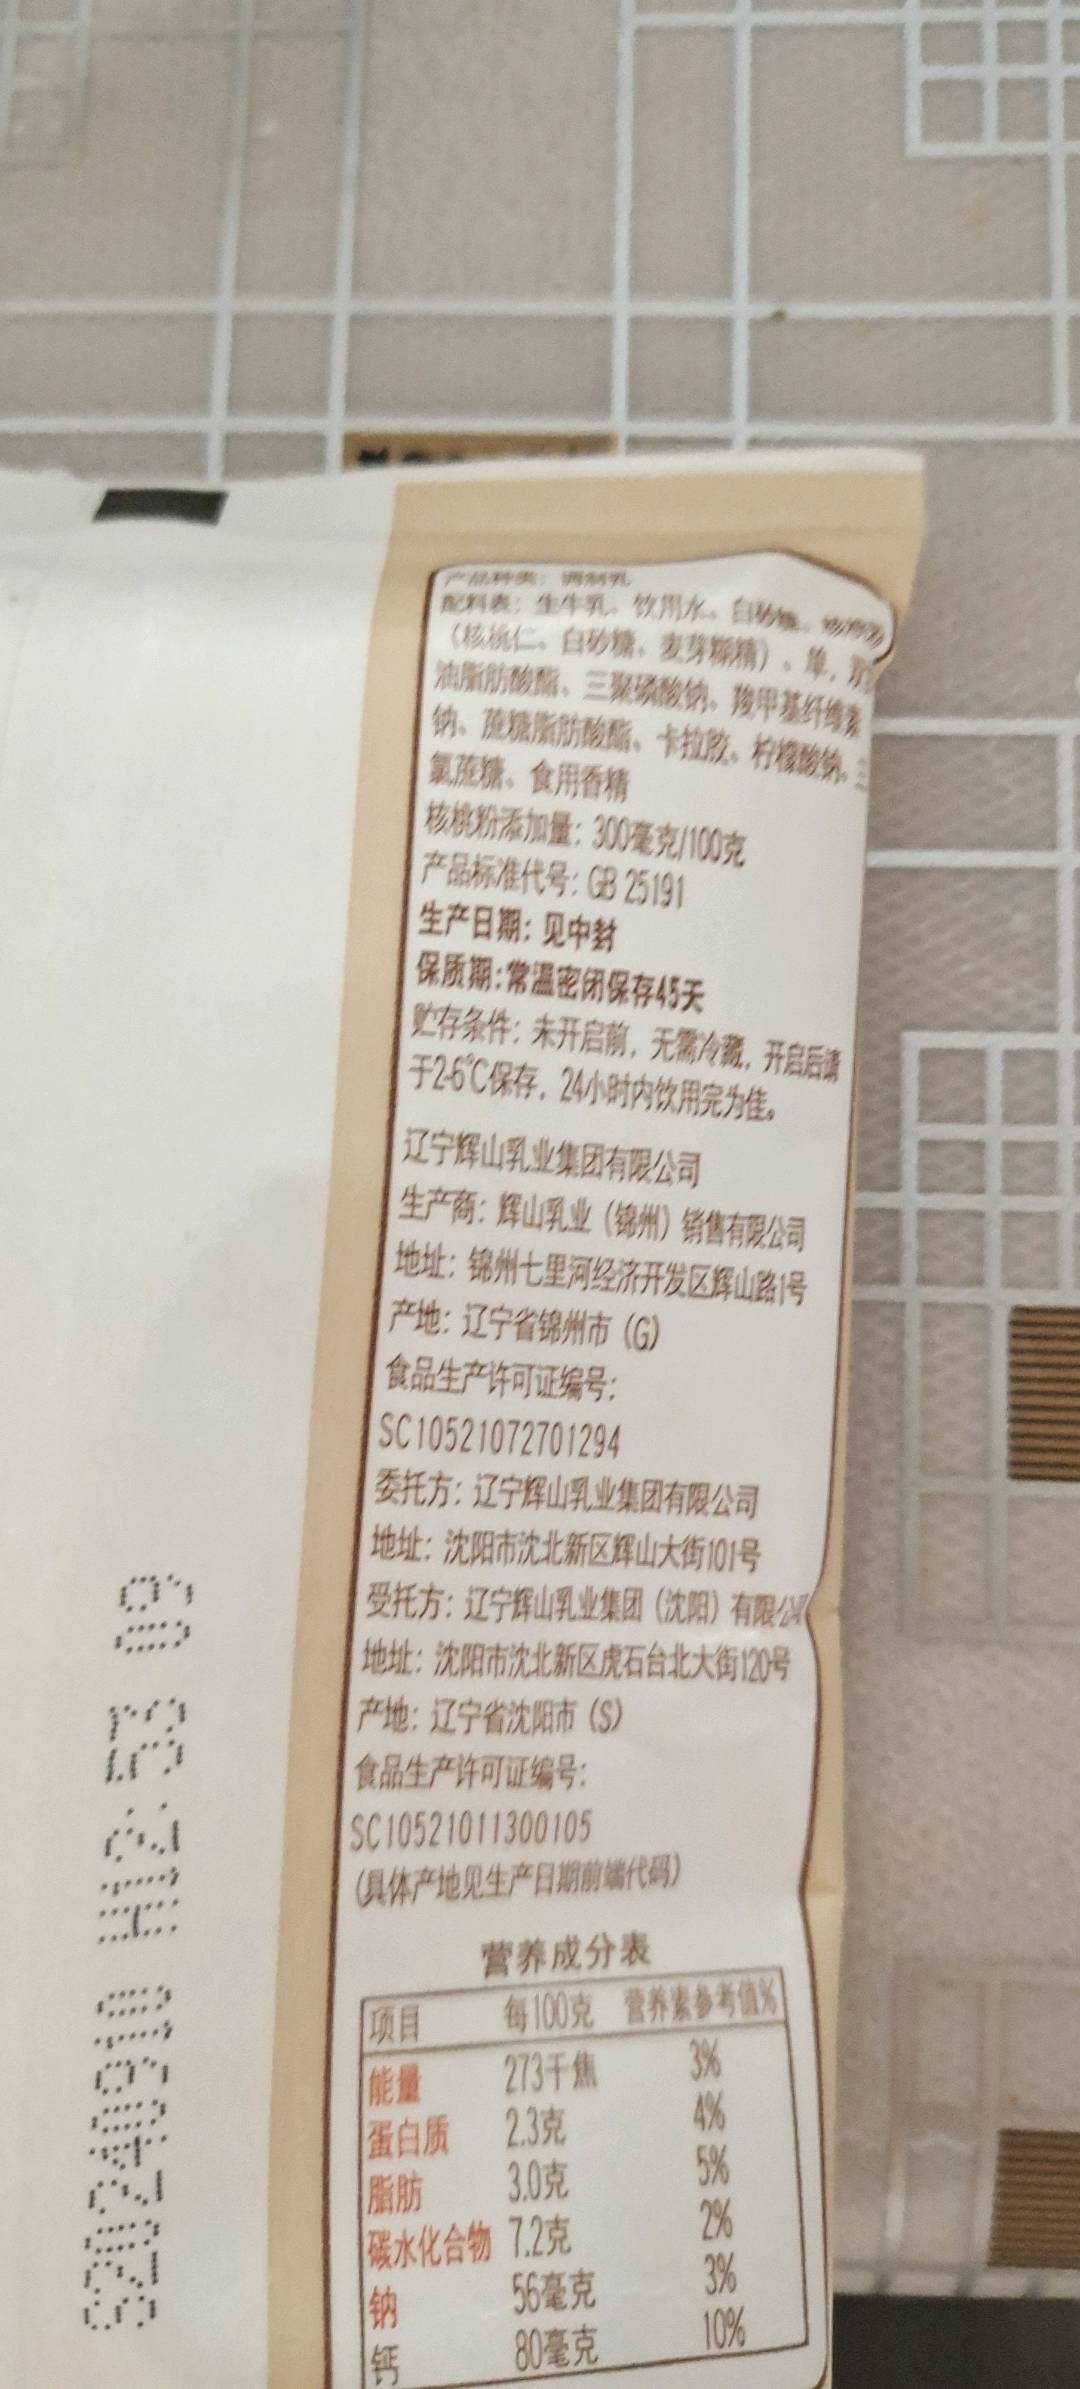 产品种类：调制乳
配料表：生牛乳、饮用水、白砂糖、
（核桃仁、白砂糖、麦芽糊精）、单，双
油脂肪酸酯、三聚磷酸钠、羧甲基纤维素
钠、蔗糖脂肪酸酯、卡拉胶、柠檬酸钠、三
氯蔗糖、食用香精
核桃粉添加量：300毫克/100克
产品标准代号：GB 25191
生产日期：见中封
保质期：常温密闭保存45天
贮存条件：未开启前，无需冷藏，开启后请
于2-6℃保存，24小时内饮用完为佳。
辽宁辉山乳业集团有限公司
生产商：辉山乳业（锦州）销售有限公司
地址：锦州七里河经济开发区辉山路1号
产地：辽宁省锦州市（G）
食品生产许可证编号：
SC10521072701294
委托方：辽宁辉山乳业集团有限公司
地址：沈阳市沈北新区辉山大街101号
受托方：辽宁辉山乳业集团（沈阳）有限公司
地址：沈阳市沈北新区虎石台北大街120号
产地：辽宁省沈阳市（S）
食品生产许可证编号：
SC10521011300105
（具体产地见生产日期前端代码）
营养成分表
项目 每100克 营养素参考值%
能量 273千焦 3%
蛋白质 2.3克 4%
脂肪 3.0克 5%
碳水化合物 7.2克 2%
钠 56毫克 3%
钙 80毫克 10%